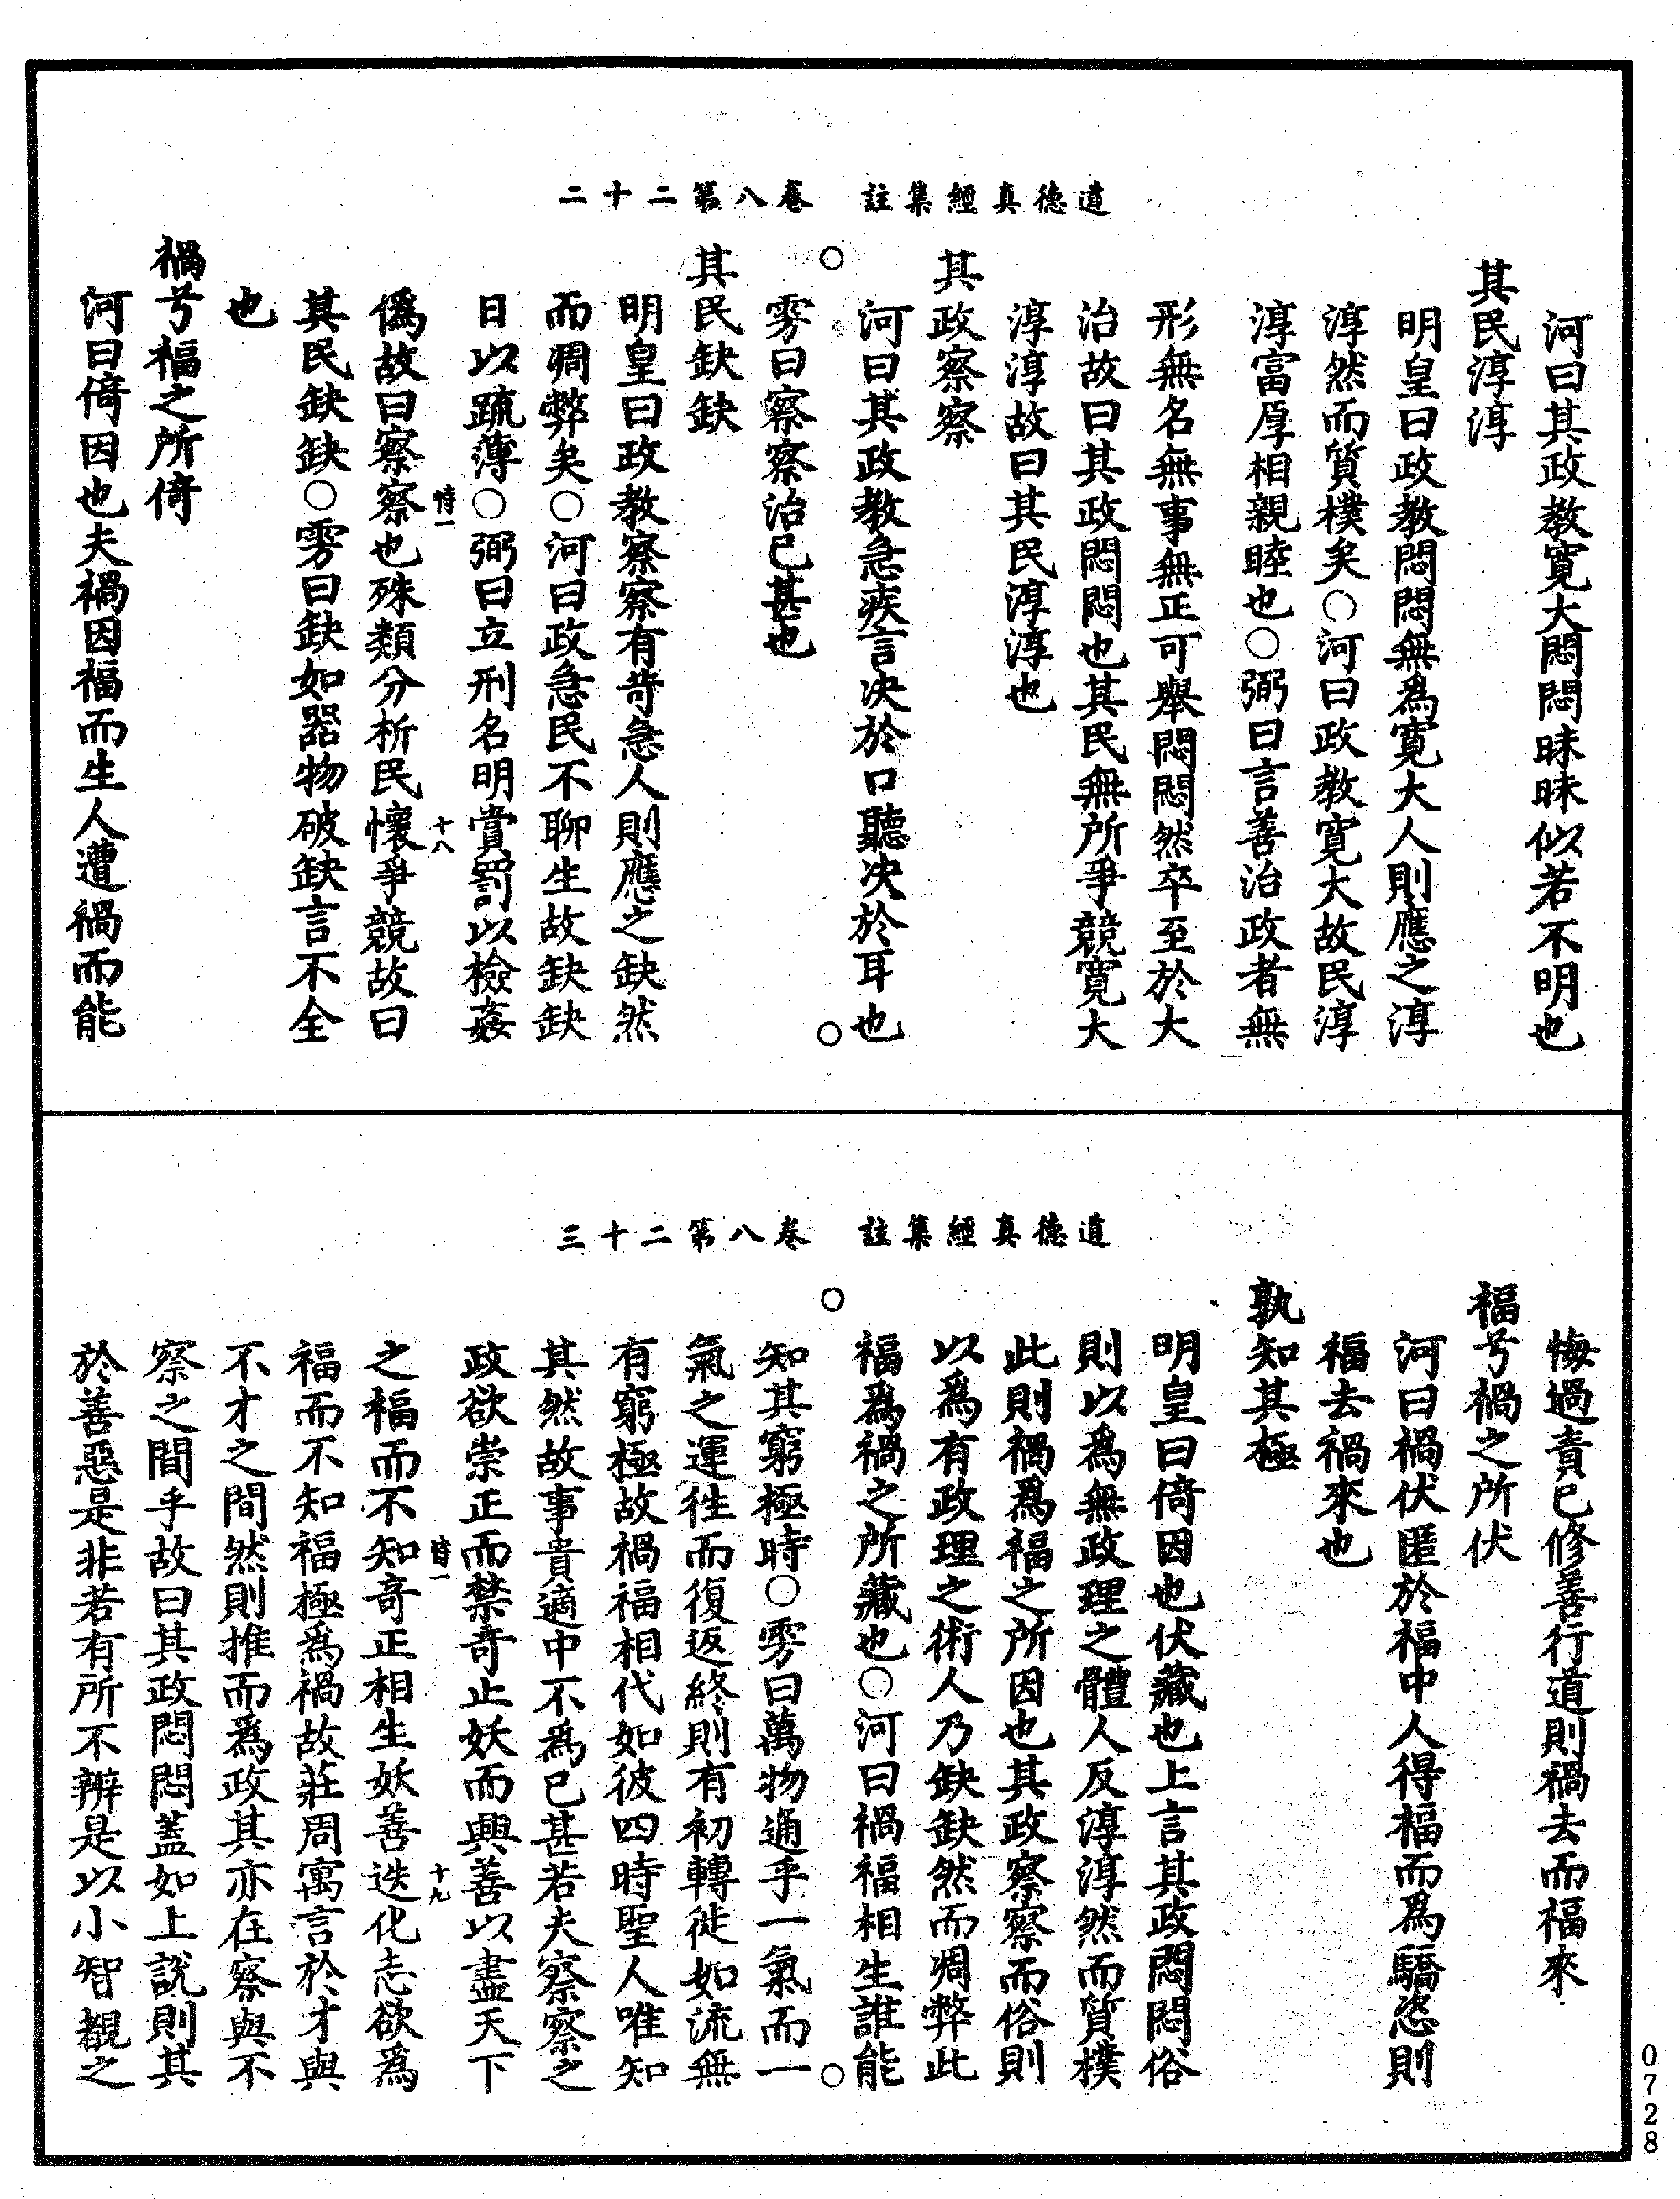 道德真經集註　卷八第二十二
河曰其政教寬大悶悶昧昧似若不明也
其民淳淳
明皇曰政教悶悶無爲寬大人則應之淳
淳然而質樸矣○河曰政教寬大故民淳
淳富厚相親睦也○弼曰言善治政者無
形無名無事無正可舉悶悶然卒至於大
治故曰其政悶悶也其民無所爭競寬大
淳淳故曰其民淳淳也
其政察察
河曰其政教急疾言决於口聽决於耳也
○
○
雱曰察察治已甚也
其民缺缺
明皇曰政教察察有苛急人則應之缺然
而凋弊矣○河曰政急民不聊生故缺缺
日以疏薄○弼曰立刑名明賞罰以檢姦
特一　十八
僞故曰察察也殊類分析民懷爭競故曰
其民缺缺○雱曰缺如器物破缺言不全
也
禍兮福之所倚
河曰倚因也夫禍因福而生人遭禍而能
道德真經集註　卷八第二十三
悔過責已修善行道則禍去而福來
福兮禍之所伏
河曰禍伏匿於福中人得福而爲驕恣則
福去禍來也
孰知其極
明皇曰倚因也伏藏也上言其政悶悶俗
則以爲無政理之體人反淳淳然而質樸
此則禍爲福之所因也其政察察而俗則
以爲有政理之術人乃缺缺然而凋弊此
福爲禍之所藏也○河曰禍福相生誰能
○
○
知其窮極時○雱曰萬物通乎一氣而一
氣之運徃而復返終則有初轉徙如流無
有窮極故禍福相代如彼四時聖人唯知
其然故事貴適中不爲已甚若夫察察之
政欲崇正而禁奇止妖而興善以盡天下
特一　十九
之福而不知奇正相生妖善迭化志欲爲
福而不知福極爲禍故莊周寓言於才與
不才之間然則推而爲政其亦在察與不
察之間乎故曰其政悶悶蓋如上說則其
於善惡是非若有所不辨是以小智觀之
0728